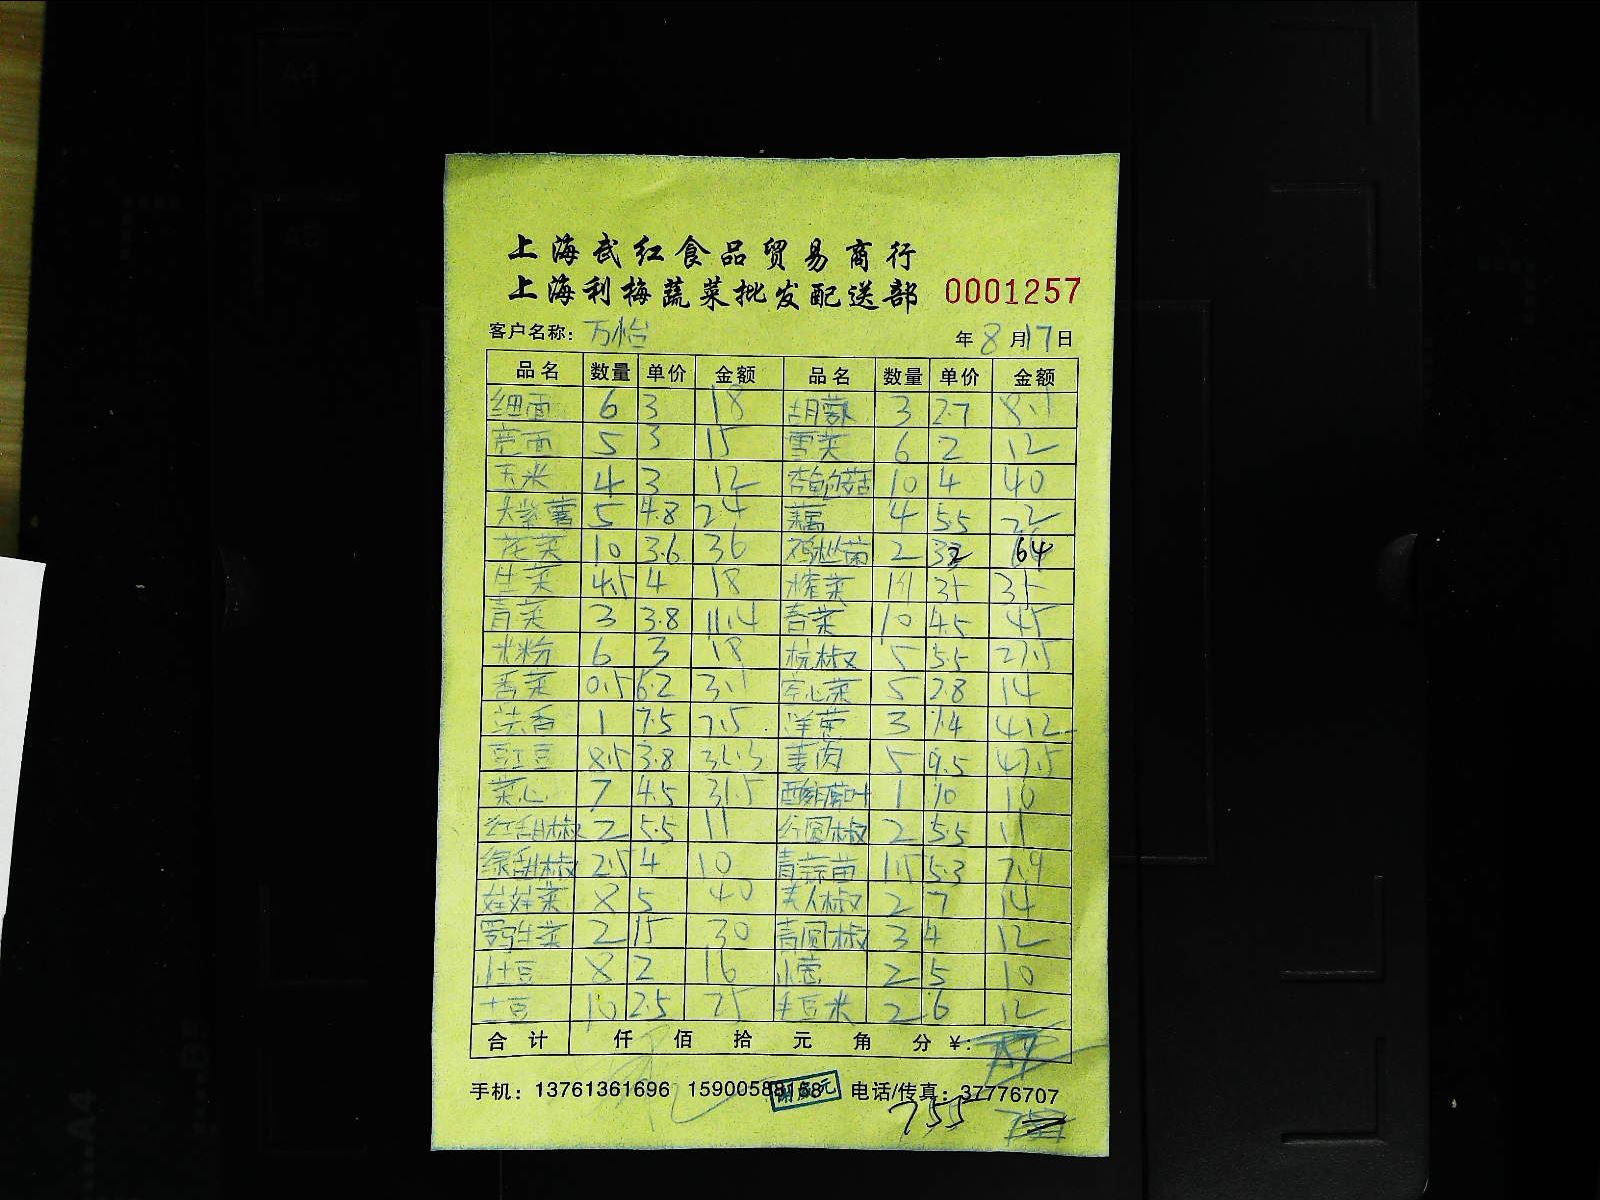 上海武红食品贸易商行
上海利梅蔬菜批发配送部 0001257
客户名称: 万怡 年 8 月 17 日
品名 数量 单价 金额 品名 数量 单价 金额
细面 6 3 18 胡萝 3 2.7 8.1
宽面 5 3 15 雪菜 6 2 12
玉米 4 3 12 杏鲍菇 10 4 40
大紫薯 5 4.8 24 藕 4 5.5 22
花菜 10 3.6 36 鸡枞菌 2 32 64
生菜 4.5 4 18 榨菜 35 35
青菜 3 3.8 11.4 10 4.5 45
米粉 6 3 18 杭椒 5 5.5 27.5
香菜 0.5 6.2 3.1 空心菜 5 2.8 14
法香 1 7.5 7.5 洋葱 3 1.4 4.2
豇豆 8.5 3.8 32.3 姜肉 5 9.5 47.5
菜心 7 4.5 31.5 1 10 10
红甜椒 2 5.5 11 红圆椒 2 5.5 11
绿甜椒 2.5 4 10 青蒜苗 1.5 5.3 7.9
娃娃菜 8 5 40 美人椒 2 7 14
罗马生菜 2 15 30 青圆椒 3 4 12
小土豆 8 2 16 小葱 2 5 10
土豆 10 2.5 25 毛豆米 2 6 12
合计 仟 佰 拾 元 角 分 ¥:
手机: 13761361696 15900588168 电话/传真: 37776707
755